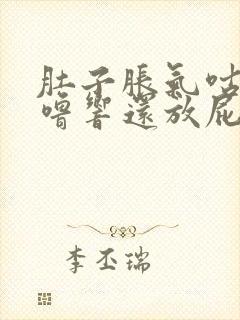 肚子胀氣咕
噜響還放屁
李丕瑞